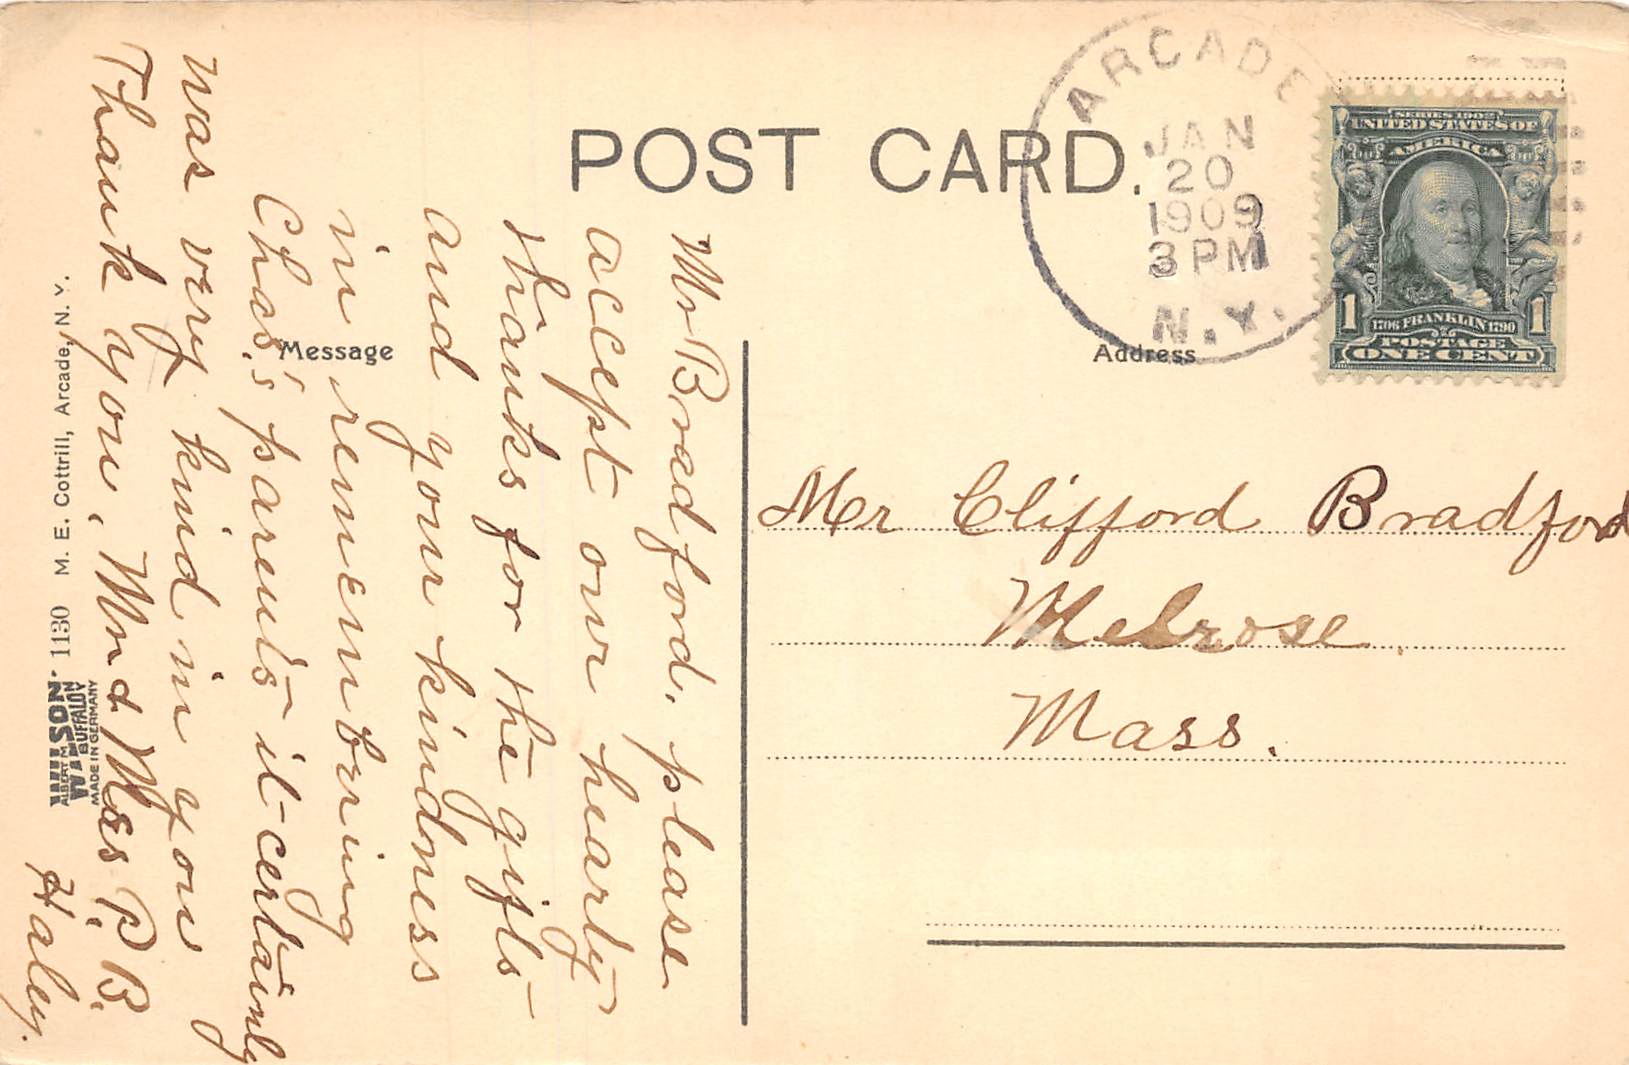 POST CARD.
ARCADE
JAN
20
1909
3 PM
N.Y.
SERIES 1902
UNITED STATES OF
AMERICA
1 1
1706 FRANKLIN 1790
POSTAGE
ONE CENT
Message
Address
Mr Bradford, please
accept our hearty
thanks for the gifts
and your kindness
in remembring
Chas.'s parents it certainly
was very kind in you
Thank you, Mr & Mrs P. B.
Haley.
Mr Clifford Bradford
Melrose.
Mass.
1130 M. E. Cottrill, Arcade, N. Y.
ALBERT M.
WILSON
BUFFALO NY
MADE IN GERMANY